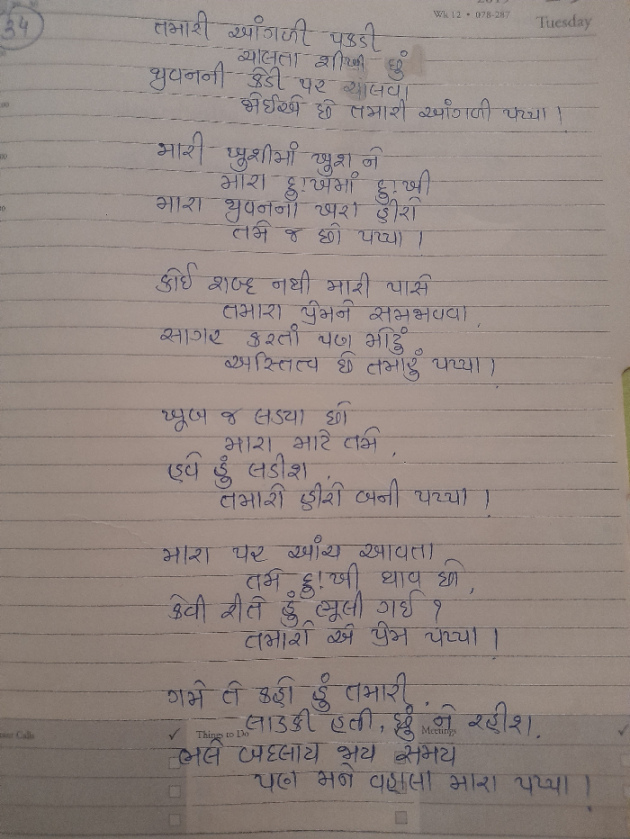 34
Wk 12 • 078-287
Tuesday
તમારી આંગળી પકડી
ચાલતા શીખી છું
જીવનની કેડી પર ચાલવા
જોઈએ છે તમારી આંગળી પપ્પા !
મારી ખુશીમાં ખુશ ને
મારા દુઃખમાં દુઃખી
મારા જીવનના ખરા હીરો
તમે જ છો પપ્પા !
કોઈ શબ્દ નથી મારી પાસે
તમારા પ્રેમને સમજાવવા,
સાગર કરતાં પણ મોટું
અસ્તિત્વ છે તમારું પપ્પા !
ખૂબ જ લડ્યા છો
મારા માટે તમે,
હવે હું લડીશ,
તમારી હીરો બની પપ્પા !
મારા પર આંચ આવતા
તમે દુઃખી થાવ છો,
કેવી રીતે હું ભૂલી ગઈ ?
તમારો એ પ્રેમ પપ્પા !
ગમે તે કહો હું તમારી,
લાડકી હતી, છું ને રહીશ,
ભલે બદલાય જાય સમય
પણ મને વહાલા મારા પપ્પા !
Calls
Things to Do
Meetings